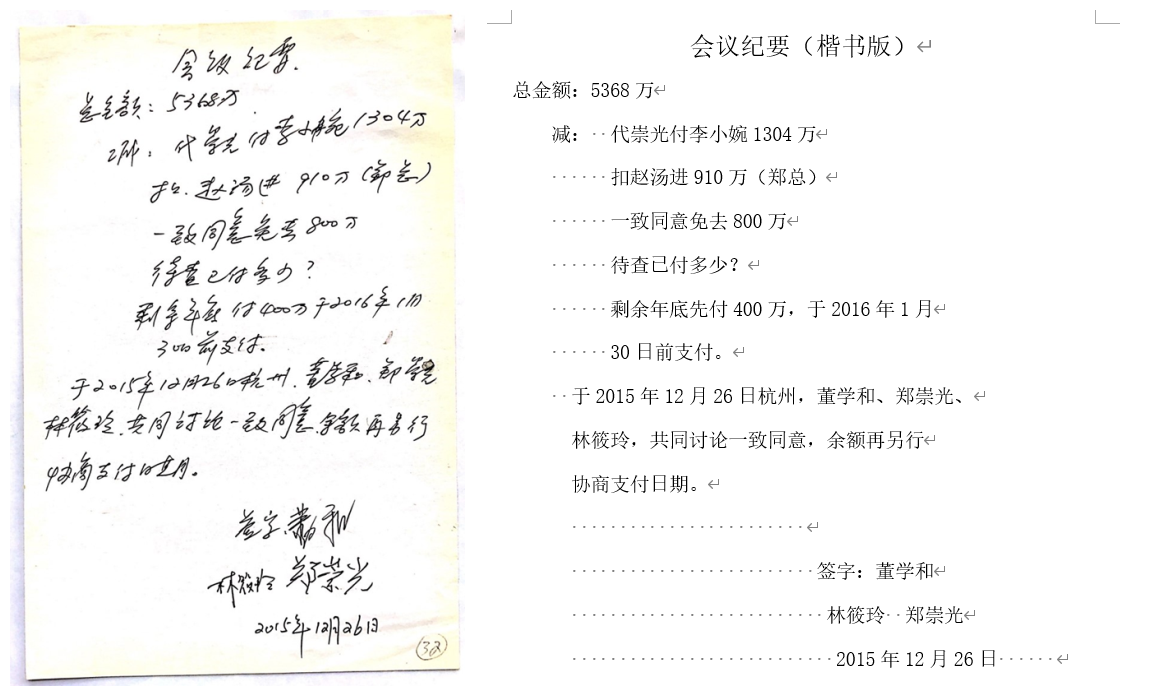 会议纪要.
总金额：5368万.
减：代崇光付李小婉1304万
扣.赵汤进 910万（郑总）
一致同意免去800万
待查已付多少？
剩余年底付400万于2016年1月
30日前支付.
于2015年12月26日杭州.董学和.郑崇光
林筱玲.共同讨论一致同意.余额再另行
协商支付日期。
签字.董学和
林筱玲 郑荣光
2015年12月26日
32
会议纪要（楷书版）
总金额：5368万
减：代崇光付李小婉1304万
扣赵汤进910万（郑总）
一致同意免去800万
待查已付多少？
剩余年底先付400万，于2016年1月
30日前支付。
于2015年12月26日杭州，董学和、郑崇光、
林筱玲，共同讨论一致同意，余额再另行
协商支付日期。
签字：董学和
林筱玲 郑崇光
2015年12月26日